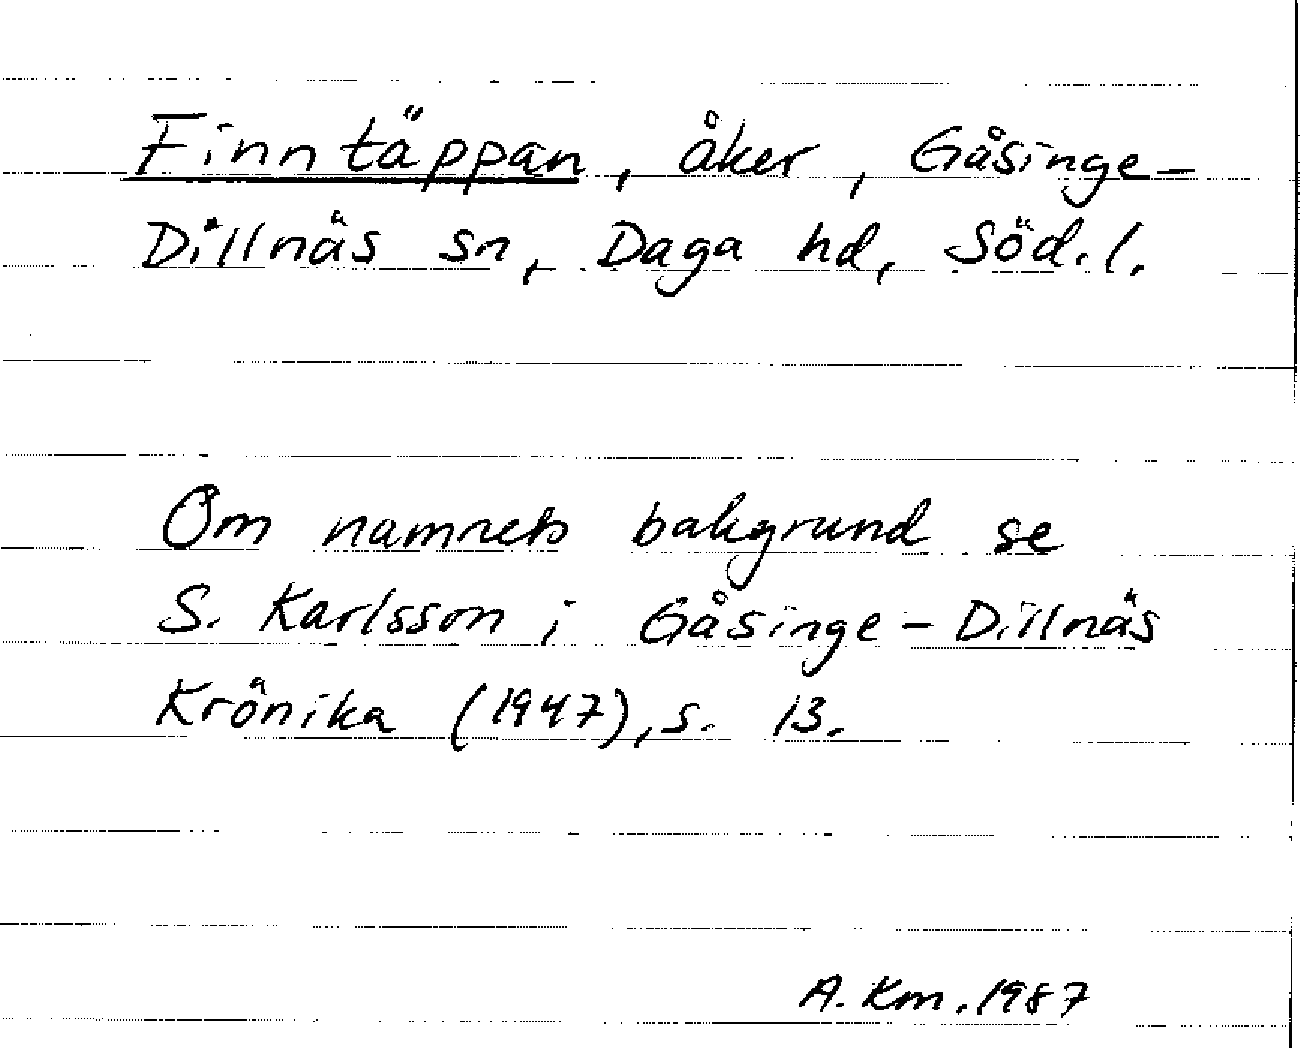 Finntäppan, åker, Gåsinge-
Dillnäs sn, Daga hd, Söd.l.
Om namnets bakgrund se
S. Karlsson i Gåsinge-Dillnäs
Krönika (1947), s. 13.
A. Km. 1987